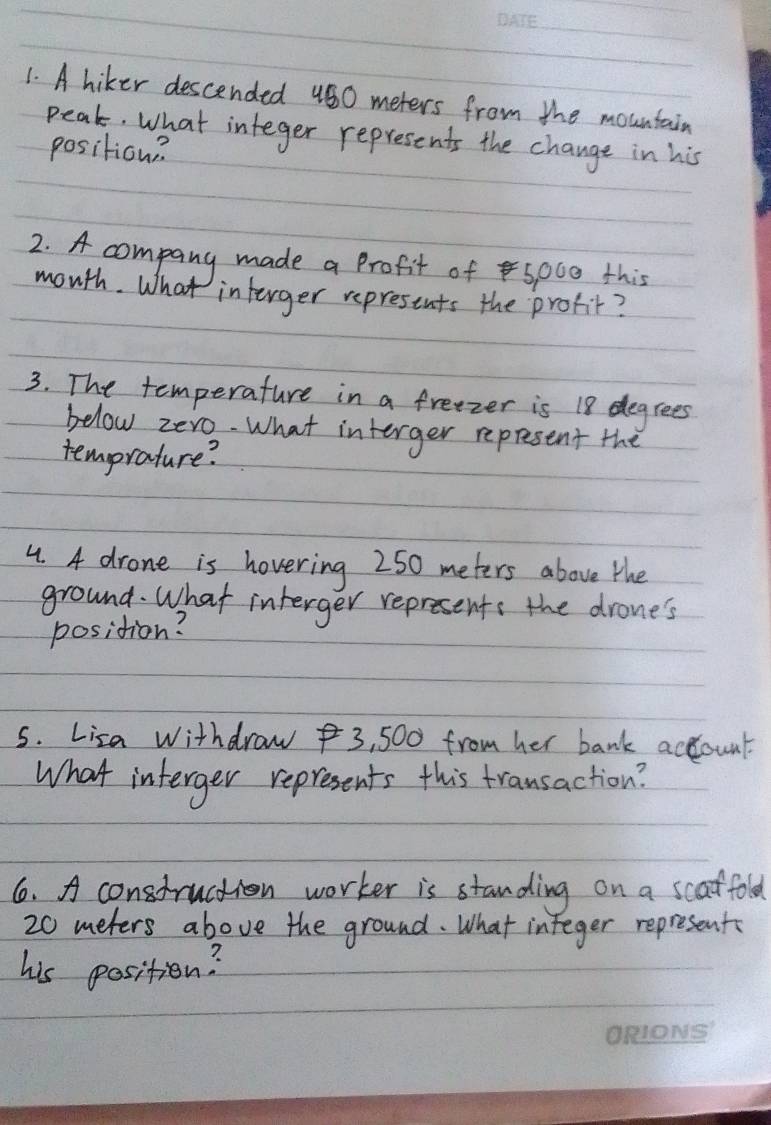 DATE
1. A hiker descended 450 meters from the mountain
peak. What integer represents the change in his
position?
2. A company made a Profit of ₱5,000 this
month. What interger represents the profit?
3. The temperature in a freezer is 18 degrees
below zero. What interger represent the
temprature?
4. A drone is hovering 250 meters above the
ground. What interger represents the drone's
position?
5. Lisa withdraw ₱3,500 from her bank account.
What interger represents this transaction?
6. A construction worker is standing on a scaffold
20 meters above the ground. What integer represents
his position?
ORIONS